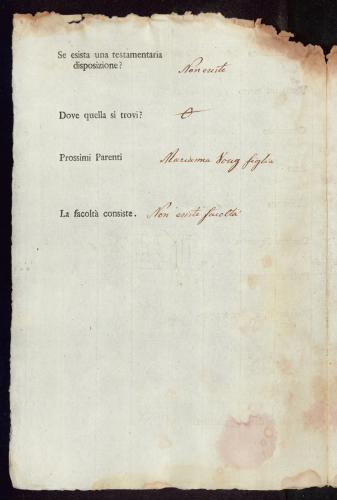 Se esista una testamentaria
disposizione? Non esiste
Dove quella si trovi?
Prossimi Parenti Marianna Voug figlia
La facoltà consiste. Non esiste facoltà